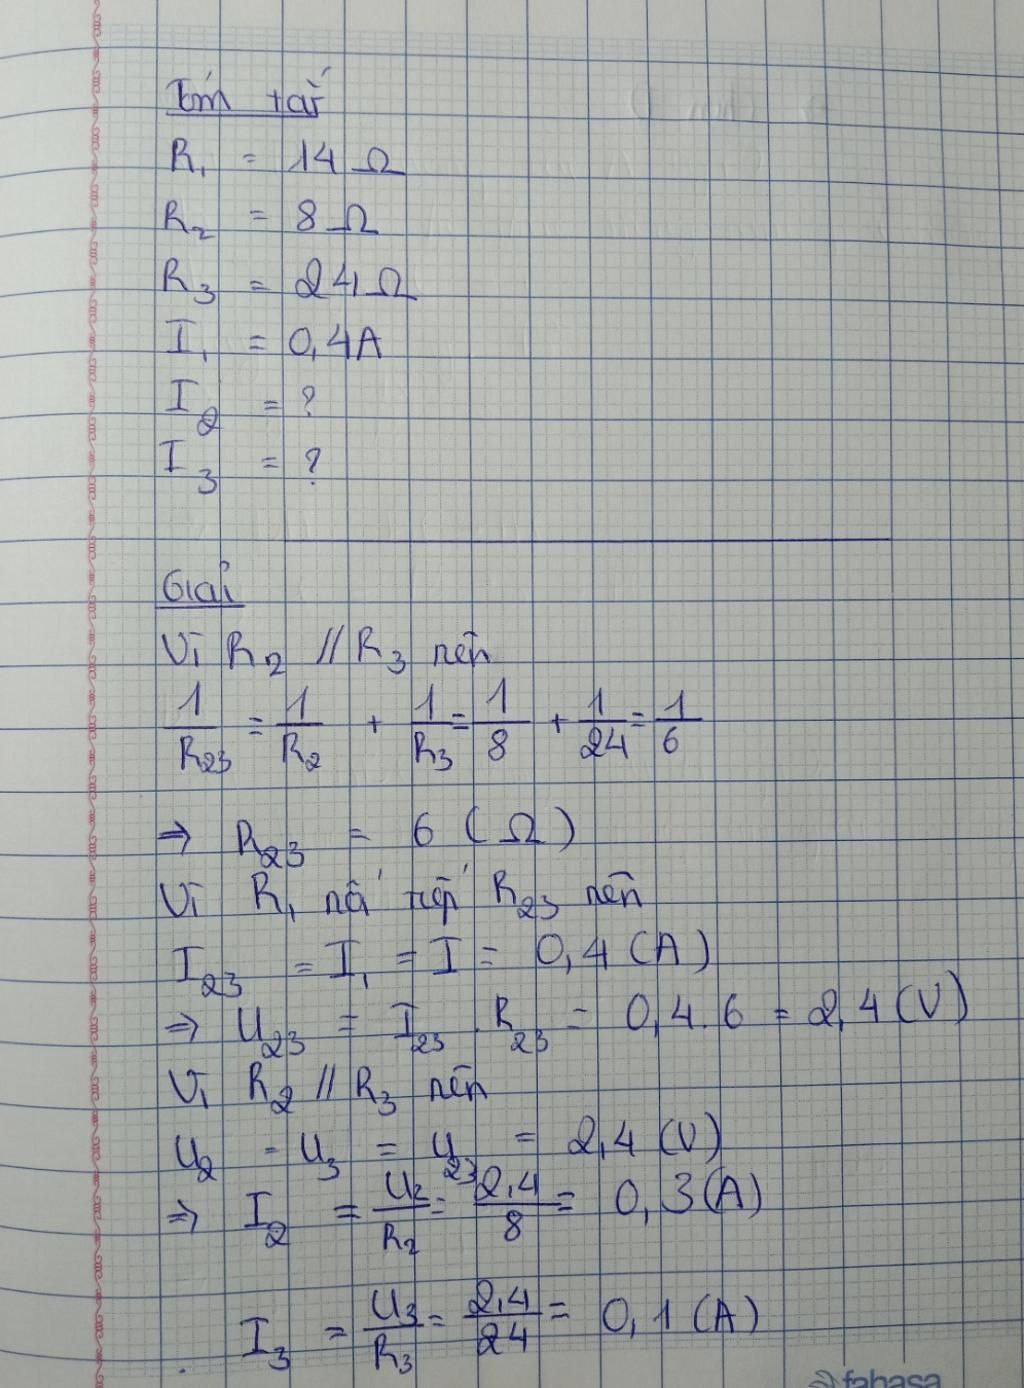 Tóm tắt
R₁ = 14 Ω
R₂ = 8 Ω
R₃ = 24 Ω
I₁ = 0,4A
I₂ = ?
I₃ = ?
Giải
Vì R₂ // R₃ nên
1/R₂₃ = 1/R₂ + 1/R₃ = 1/8 + 1/24 = 1/6
⇒ R₂₃ = 6 (Ω)
Vì R₁ nối tiếp R₂₃ nên
I₂₃ = I₁ = I = 0,4 (A)
⇒ U₂₃ = I₂₃ . R₂₃ = 0,4 . 6 = 2,4 (V)
Vì R₂ // R₃ nên
U₂ = U₃ = U₂₃ = 2,4 (V)
⇒ I₂ = U₂/R₂ = 2,4/8 = 0,3 (A)
I₃ = U₃/R₃ = 2,4/24 = 0,1 (A)
fahasa